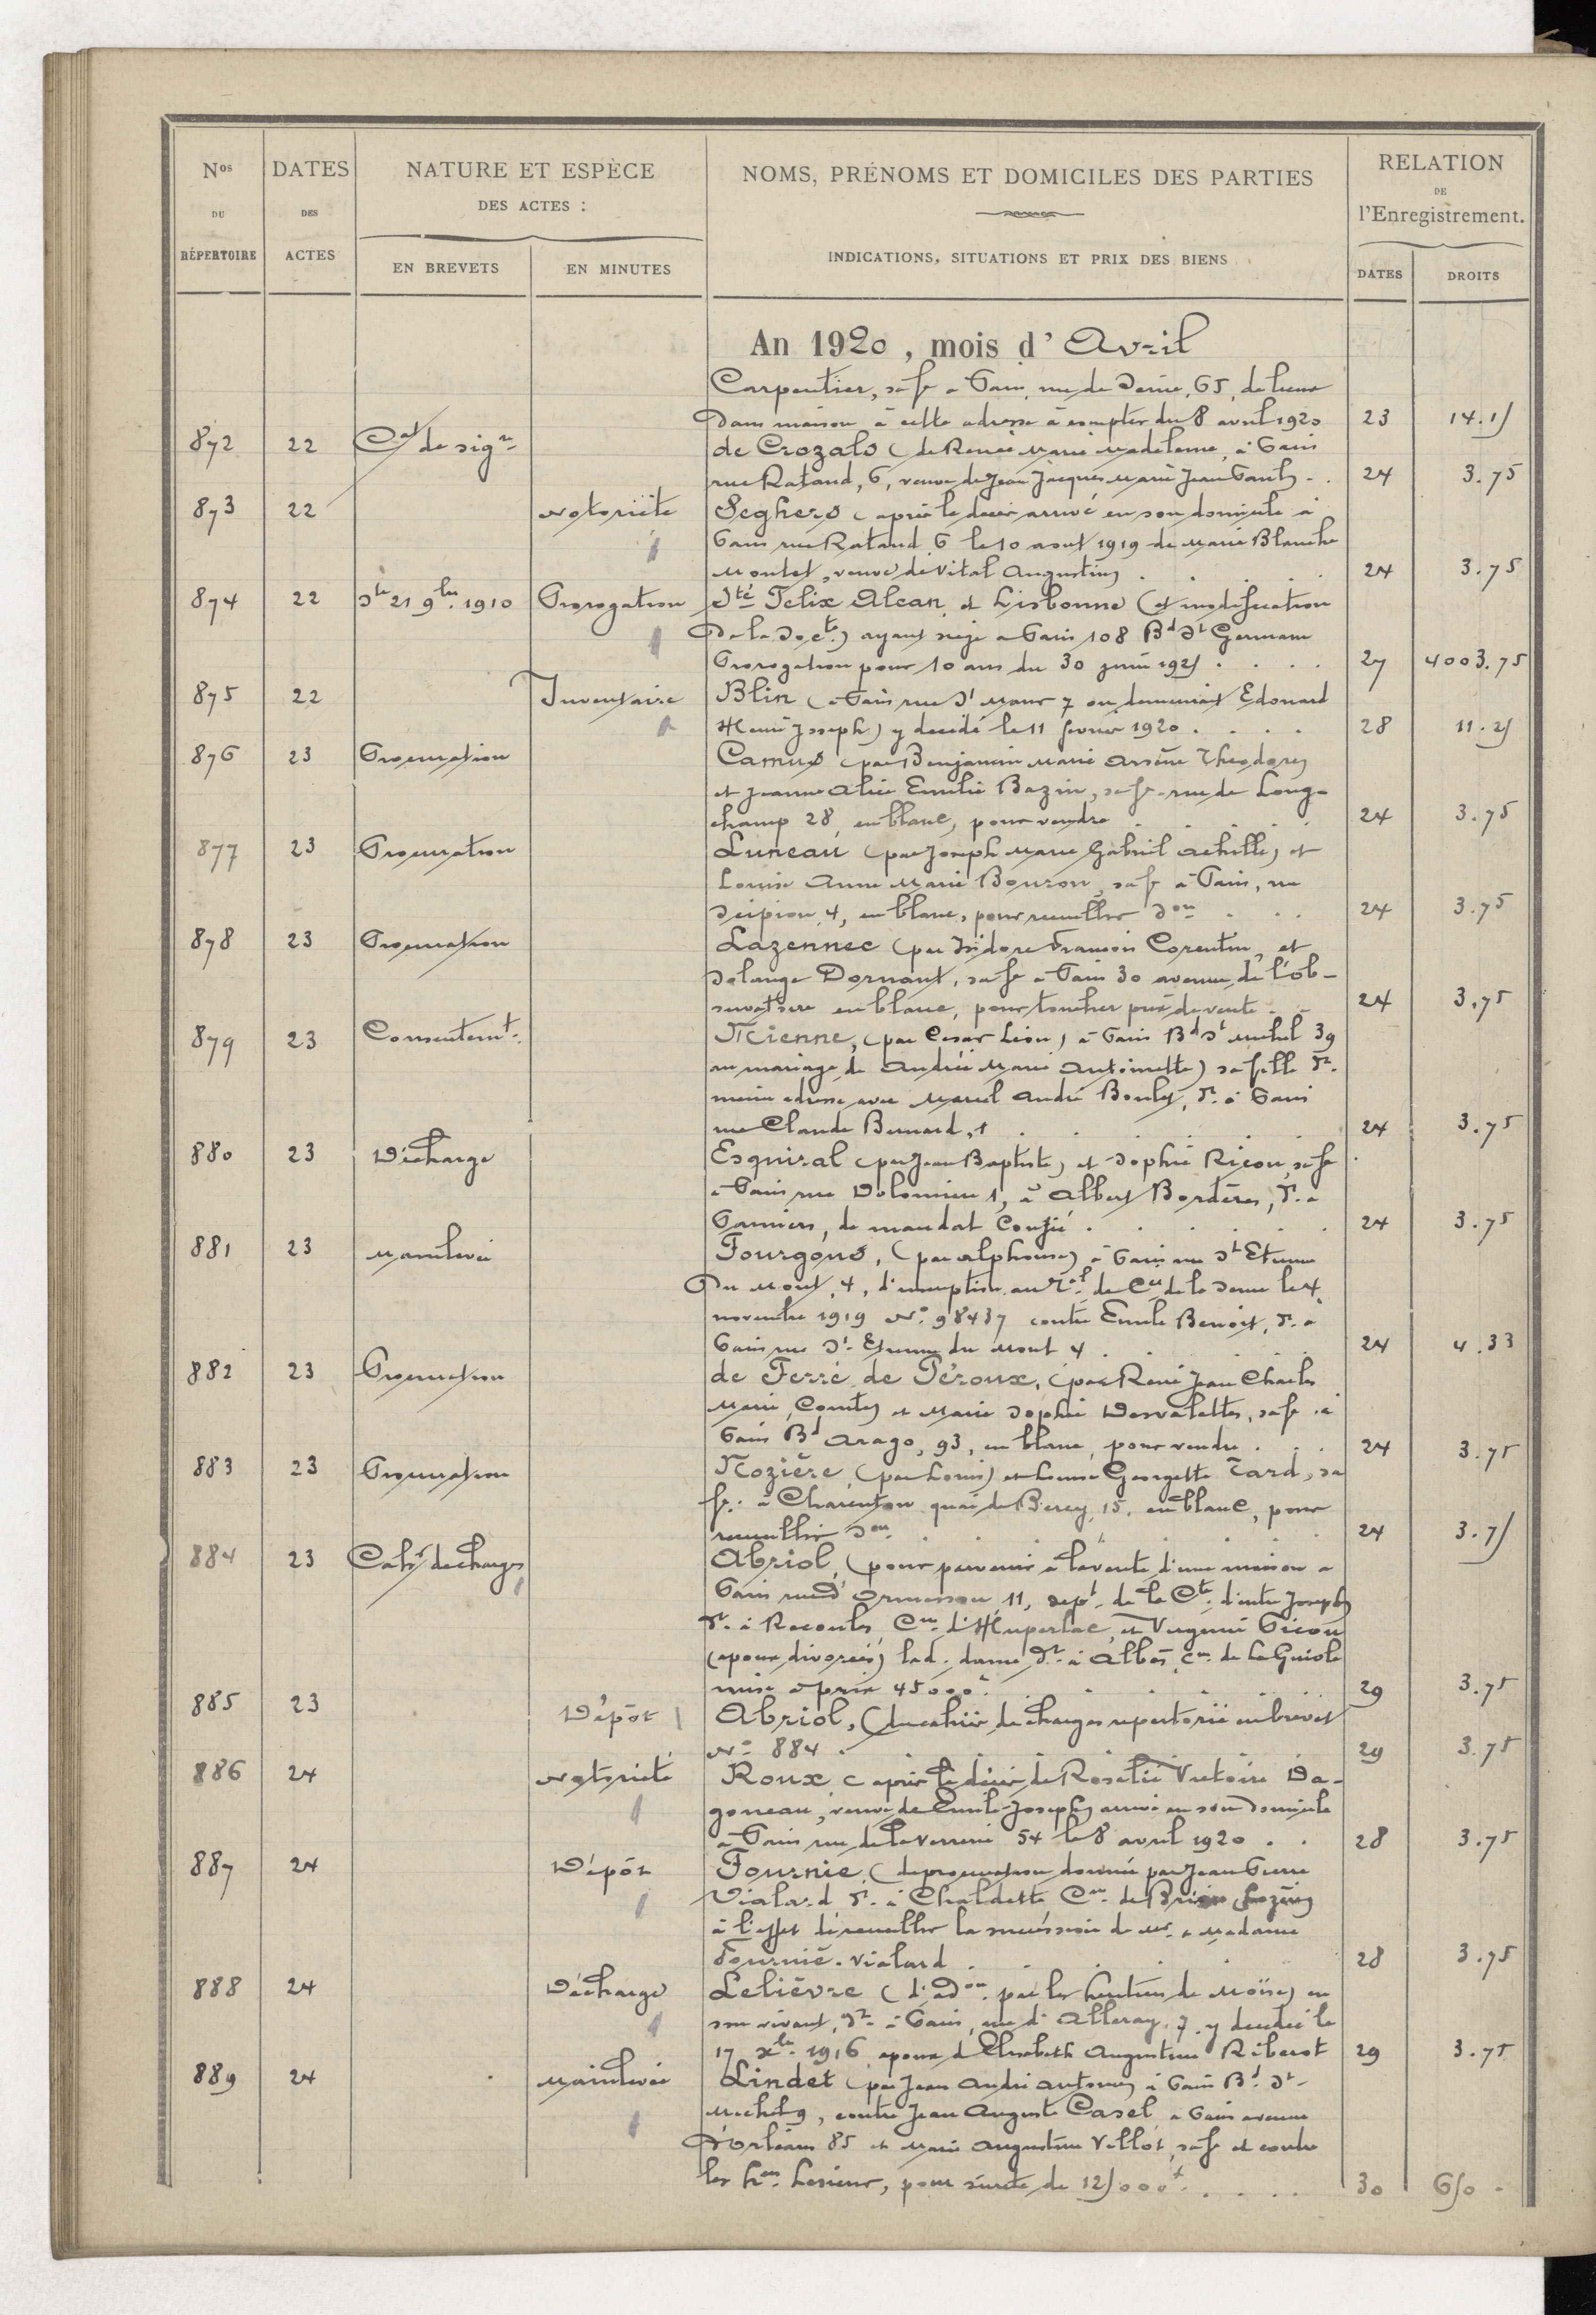 Nos DU RÉPERTOIRE
DATES DES ACTES
NATURE ET ESPÈCE DES ACTES :
EN BREVETS
EN MINUTES
NOMS, PRÉNOMS ET DOMICILES DES PARTIES
INDICATIONS, SITUATIONS ET PRIX DES BIENS
RELATION DE l'Enregistrement.
DATES
DROITS
An 1920, mois d'Avril
Carpentier, sa fe a Paris, rue de Seine, 65, de lieux
dans maison à cette adresse à compter du 8 avril 1920 23 14.15
872 22 Cat de sigre de Crozals (de Renée Marie Madeleine, à Paris
rue Rataud, 6, veuve de Jean Jacques Marie Jean Paul) . . 24 3.75
873 22 Notoriété Seghers (après le décès arrivé en son domicile à
Paris rue Rataud 6 le 10 aout 1919 de Marie Blanche
Montet, veuve de Vital Augustin) . . . 24 3.75
874 22 Ste 21 9bre 1910 Prorogation Sté Felix Alcan et Lisbonne (et modification
de la Socte) ayant siège a Paris 108 Bd St Germain
Prorogation pour 10 ans du 30 juin 1925 . . . . 27 4003.75
875 22 Inventaire Blin (a Paris rue St Maur 7 ou demeurait Edouard
Henri Joseph) y décédé le 11 février 1920 . . . . 28 11.25
876 23 Procuration Camus (par Benjamin Marie Arsène Théodore)
et Jeanne Alice Emilie Bazin, sa fe rue de Long-
champ 28, en blanc, pour vendre . . . 24 3.75
877 23 Procuration Luneau (par Joseph Marie Gabriel Achille) et
Louise Anne Marie Bouron, sa fe à Paris, rue
Scipion 4, en blanc, pour recueillir son . . . 24 3.75
878 23 Procuration Lazennec (par Isidore François Corentin, et
Solange Dornant, sa fe a Paris 30 avenue de l'Ob-
servatoire en blanc, pour toucher prix de vente . . 24 3.75
879 23 Consentemt. (par Cesar Léon) à Paris Bd St Michel 39
au mariage de Andrée Marie Antoinette) sa fille dt
même adresse avec Marcel André Boulet, dt à Paris
rue Claude Bernard, 1 . . . 24 3.75
880 23 Décharge Esquiral (par Jean Baptiste) et Sophie Ricou sa fe
a Paris rue Dolomieu 1, à Albert Bordères, dt a
de mandat confié . . . 24 3.75
881 23 Mainlevée Fourgous, (par Alphonse) à Paris rue St Etienne
du Mont, 4, d'inscription au de de la Seine le 4
novembre 1919 No. 98437 contre Emile Benoit, dt à
Paris rue St Etienne du Mont 4 . . . 24 4.33
882 23 Procuration de Ferré de Péroux, (par René Jean Charles
Marie, Comte) et Marie Sophie Desvalettes, sa fe à
Paris Bd Arago, 93, en blanc, pour vendre . . . 24 3.75
883 23 Procuration Nozière (par Louis) et Louise Georgette Tard, sa
fe à Charenton quai de Bercy, 15, en blanc, pour
recueillir son . . . 24 3.75
884 23 Cahr de charges Abriol, (pour parvenir a la vente d'une maison a
Paris rue d'Ormesson, 11, dept de la Cté d'entre Joseph
dt à Recoules, Cne d'Huparlac, et Virginie Gicou
(époux divorcés) lad. dame dt à Albès, cne de Laguiole
mise a prix 45000f . . . 29 3.75
885 23 Dépôt Abriol, (du cahier de charges repertorié en brevet
No 884 . . . 29 3.75
886 24 Notoriété Roux (après le décès de Rosalie Victoire Da-
goneau, veuve de Emile Joseph) arrivé en son domicile
a Paris rue de la Verrerie 54 le 8 avril 1920 . . 28 3.75
887 24 Dépôt Fournie (de procuration donnée par Jean Pierre
Vialard dt à Chaldette Cne de Brion Lozère
à l'effet de recueillir la succession de Mr. & Madame
Fournié-Vialard . . . 28 3.75
888 24 Décharge Lelièvre (d'adon par les héritiers de Moïse) en
son vivant, dt à Paris, rue d'Alleray, 7, y décédé le
17 xbre 1916 époux d'Elisabeth Augustine Riberot 29 3.75
889 24 Mainlevée Lindet (par Jean André Antoine) à Paris Bd St-
Michel 9, contre Jean Auguste Casel, a Paris avenue
d'Orléans 85 et Marie Augustine Vellot, sa fe et contre
les hers Lesieur, pour sureté de 125000f . . . . 30 650 .